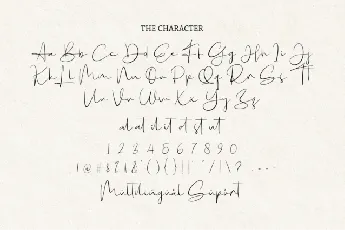 THE CHARACTER
Aa Bb Cc Dd Ee Ff Gg Hh Ii Jj
Kk Ll Mm Nn Oo Pp Qq Rr Ss Tt
Uu Vv Ww Xx Yy Zz
al al il it ot st ut
1 2 3 4 5 6 7 8 9 0
Multilingual Support